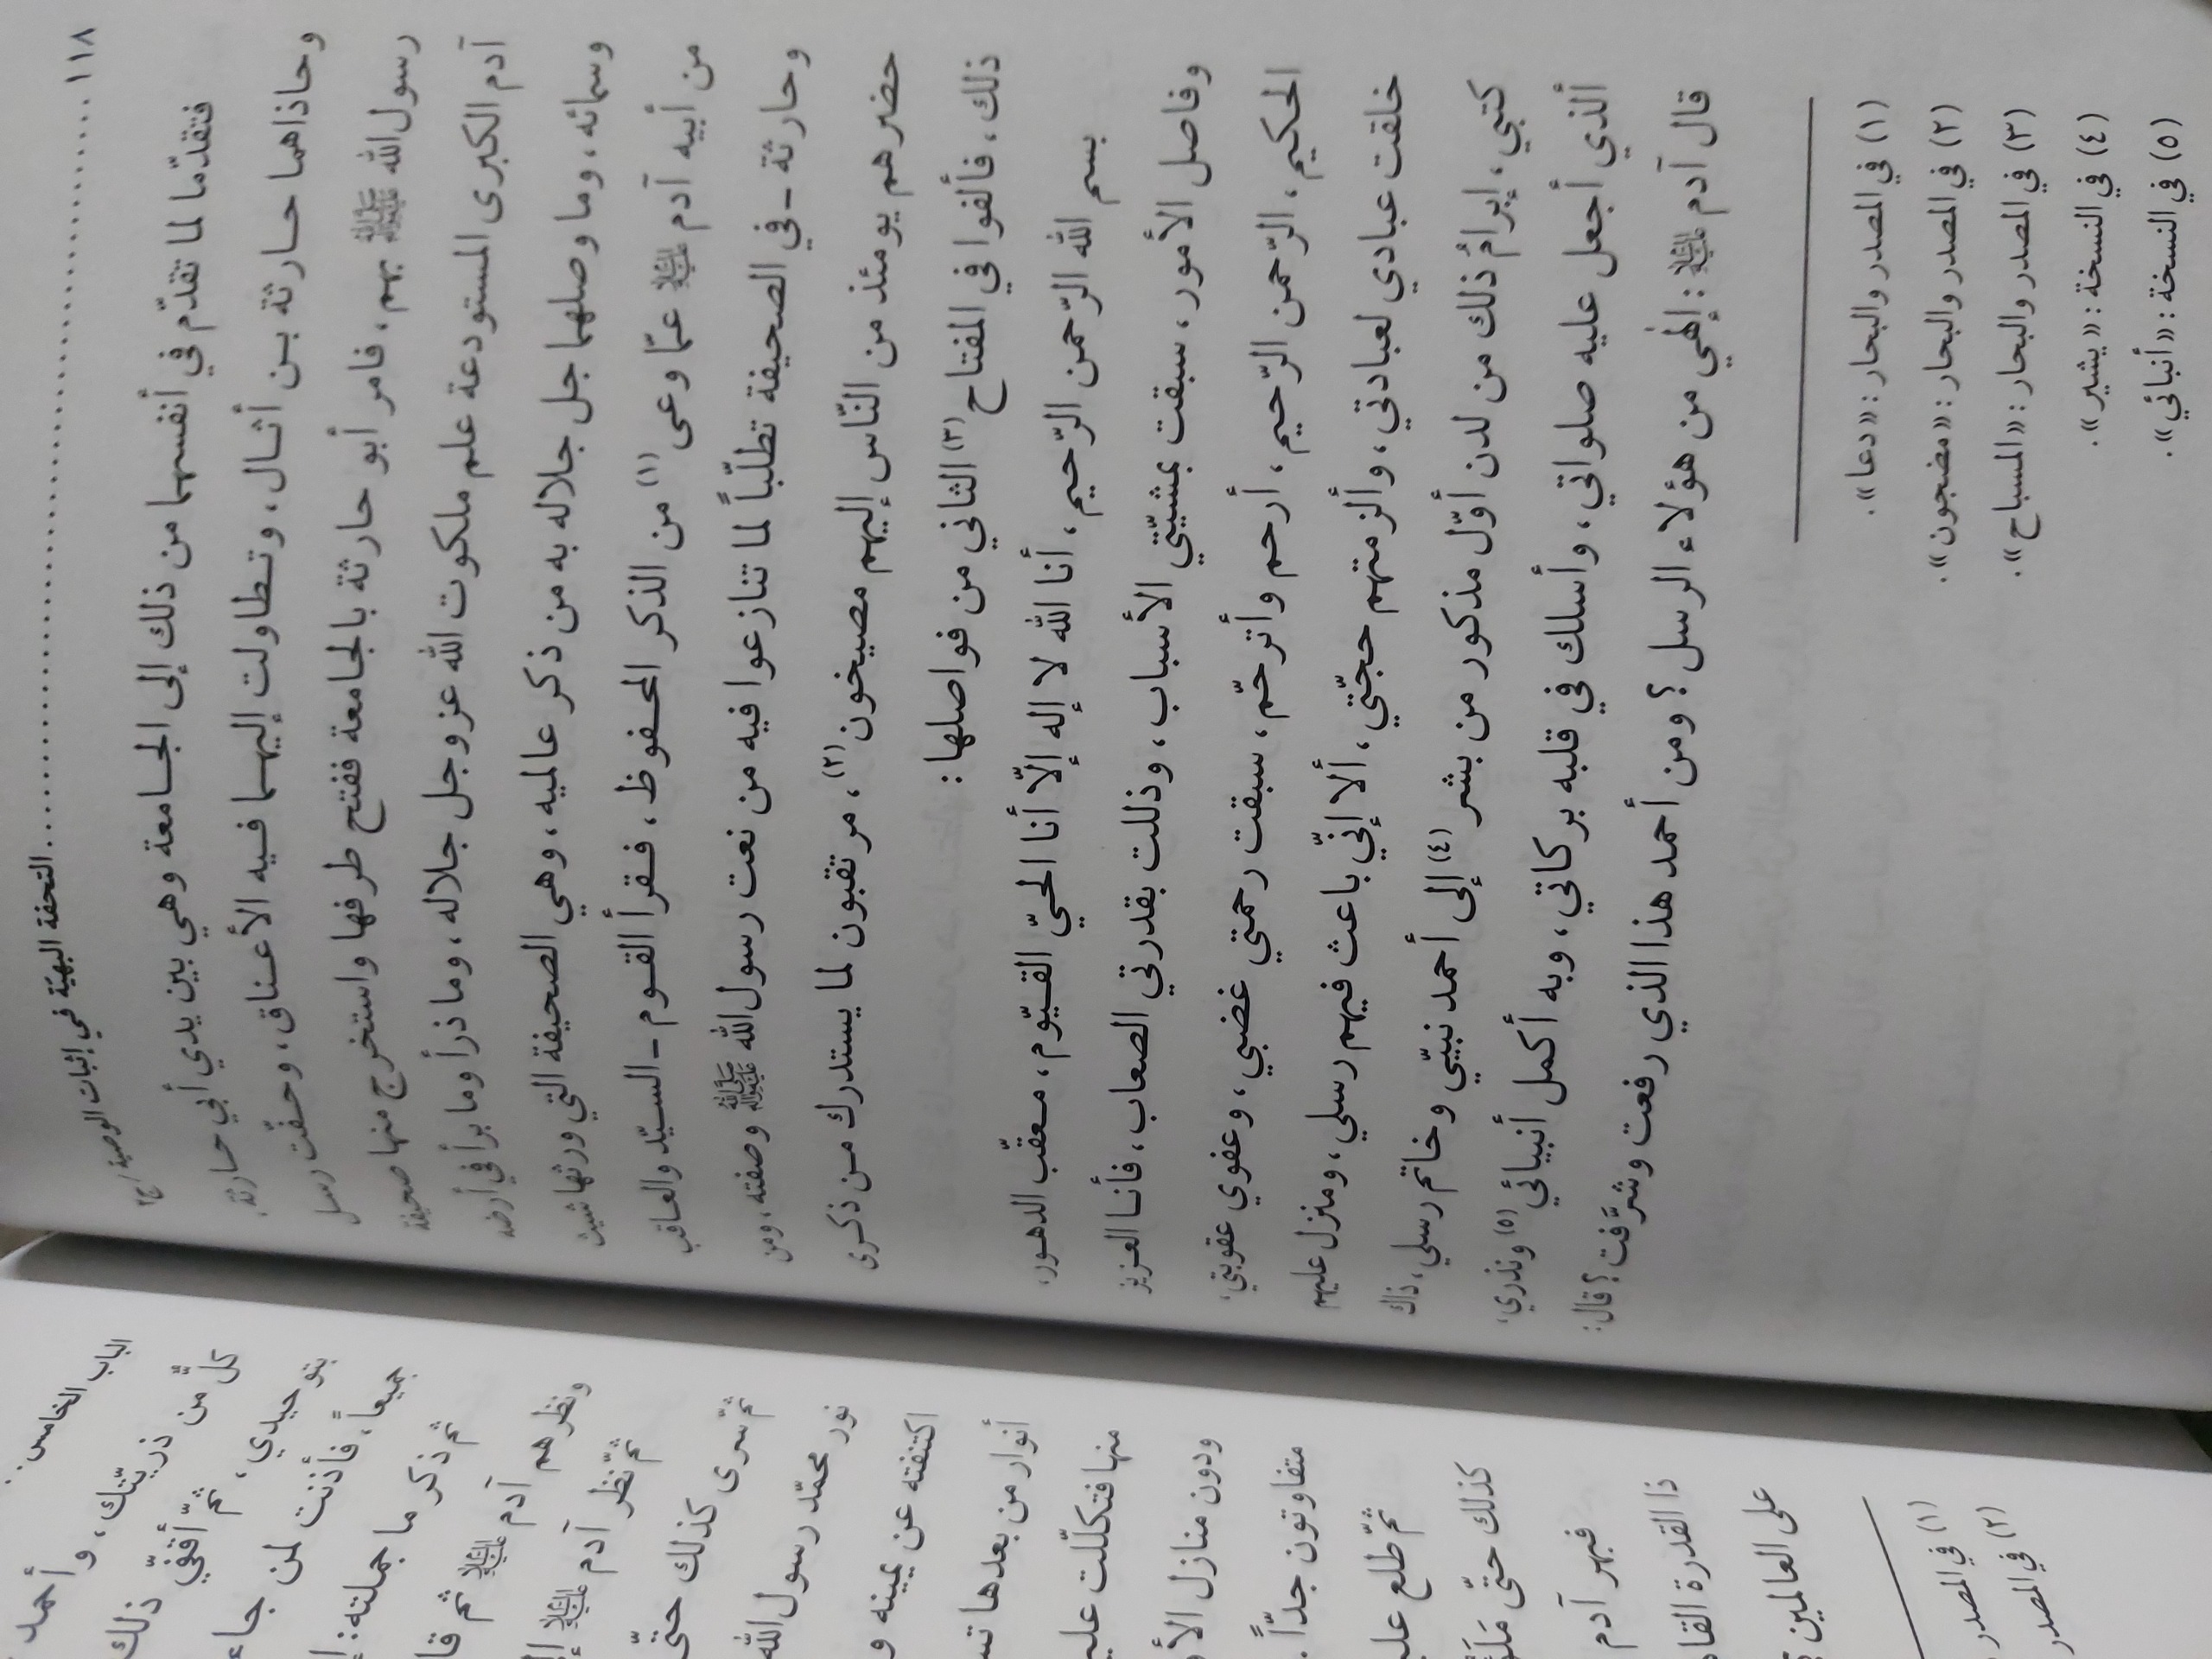 ١١٨ ........ التحفة البهيّة في إثبات الوصيّة / ج٢
فتقدّما لما تقدّم في أنفسهما من ذلك إلى الجامعة وهي بين يدي أبي حارثة،
وحاذاهما حارثة بن أثال، وتطاولت إليهما فيه الأعناق، وحفّت رسل
رسول الله ﷺ بهم، فامر أبو حارثة بالجامعة ففتح طرفها واستخرج منها صحيفة
آدم الكبرى المستودعة علم ملكوت الله عز وجل جلاله، وما ذرأ وما برأ في أرضه
وسمائه، وما وصلهما جل جلاله به من ذكر عالميه، وهي الصحيفة التي ورثها شيث
من أبيه آدم ﵇ عمّا وعى (١) من الذكر المحفوظ، فقرأ القوم ـ السيّد والعاقب
وحارثة ـ في الصحيفة تطلّباً لما تنازعوا فيه من نعت رسول الله ﷺ وصفته، ومن
حضرهم يومئذ من النّاس إليهم مصيخون (٢)، مرتقبون لما يستدرك من ذكرى
ذلك، فألفوا في المفتاح (٣) الثاني من فواصلها:
بسم الله الرّحمن الرّحيم، أنا الله لا إله إلّا أنا الحيّ القيّوم، معقّب الدهور،
وفاصل الأمور، سبقت بمشيّتي الأسباب، وذللت بقدرتي الصعاب، فأنا العزيز
الحكيم، الرّحمن الرّحيم، أرحم وأترحّم، سبقت رحمتي غضبي، وعفوي عقوبتي،
خلقت عبادي لعبادتي، وألزمتهم حجّتي، ألا إنّي باعث فيهم رسلي، ومنزل عليهم
كتبي، إبرامُ ذلك من لدن أوّل مذكور من بشر (٤) إلى أحمد نبيّي وخاتم رسلي، ذاك
ألذي أجعل عليه صلواتي، وأسلك في قلبه بركاتي، وبه أكمل أنبيائي (٥) ونذري،
قال آدم ﵇: إلهي من هؤلاء الرسل؟ ومن أحمد هذا الذي رفعت وشرَّفت؟ قال:
(١) في المصدر والبحار: «دعا».
(٢) في المصدر والبحار: «مضجون».
(٣) في المصدر والبحار: «المسباح».
(٤) في النسخة: «يشير».
(٥) في النسخة: «أنبائي».
الباب الخامس
كلّ من ذريّتك، وأحمد
بتوحيدي، ثمّ أقفّي ذلك
جميعاً، فأذنت لمن جاء
ثم ذكر ما جملته:
ونظرهم آدم ﵇ ثم
ثمّ نظر آدم ﵇
ثمّ سرى كذلك حتّى
نور محمّد رسول الله
اكتنفته عن يمينه و
أنوار من بعدها
منها فتكلّت
ودون منازل
متفاوتون جدّاً.
ثمّ طلع
كذلك حتّى
فبهر آدم
ذا القدرة
على العالمين
(١) في المصدر
(٢) في المصدر